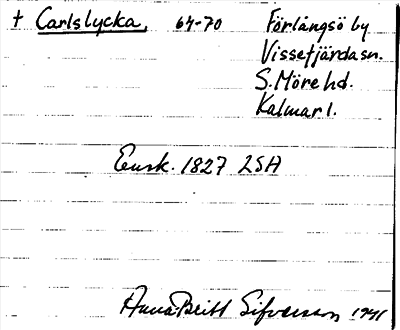 † Carlslycka, 64-70 Förlångsö by
Vissefjärda sn.
S. Möre hd.
Kalmar l.
Ensk. 1827 LSA
Anna-Britt Sifversson 1941